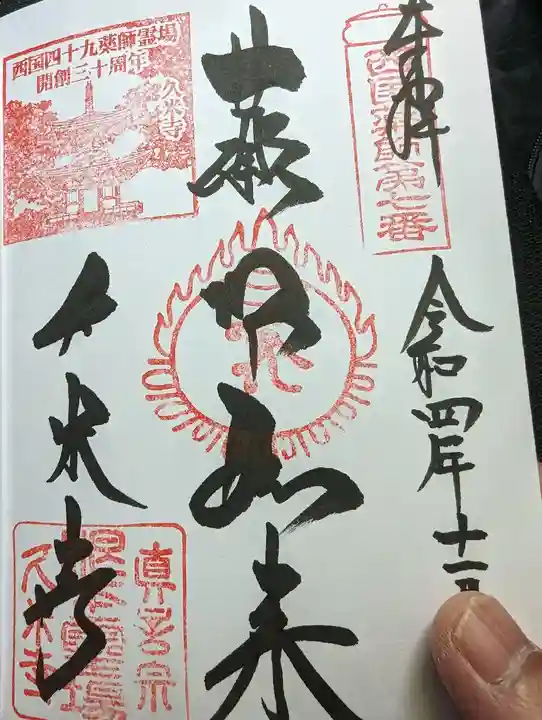 奉拝
西国薬師第七番
令和四年十二
薬師如来
西国四十九薬師霊場
開創三十周年
久米寺
久米寺
真言宗
根本霊場
久米寺